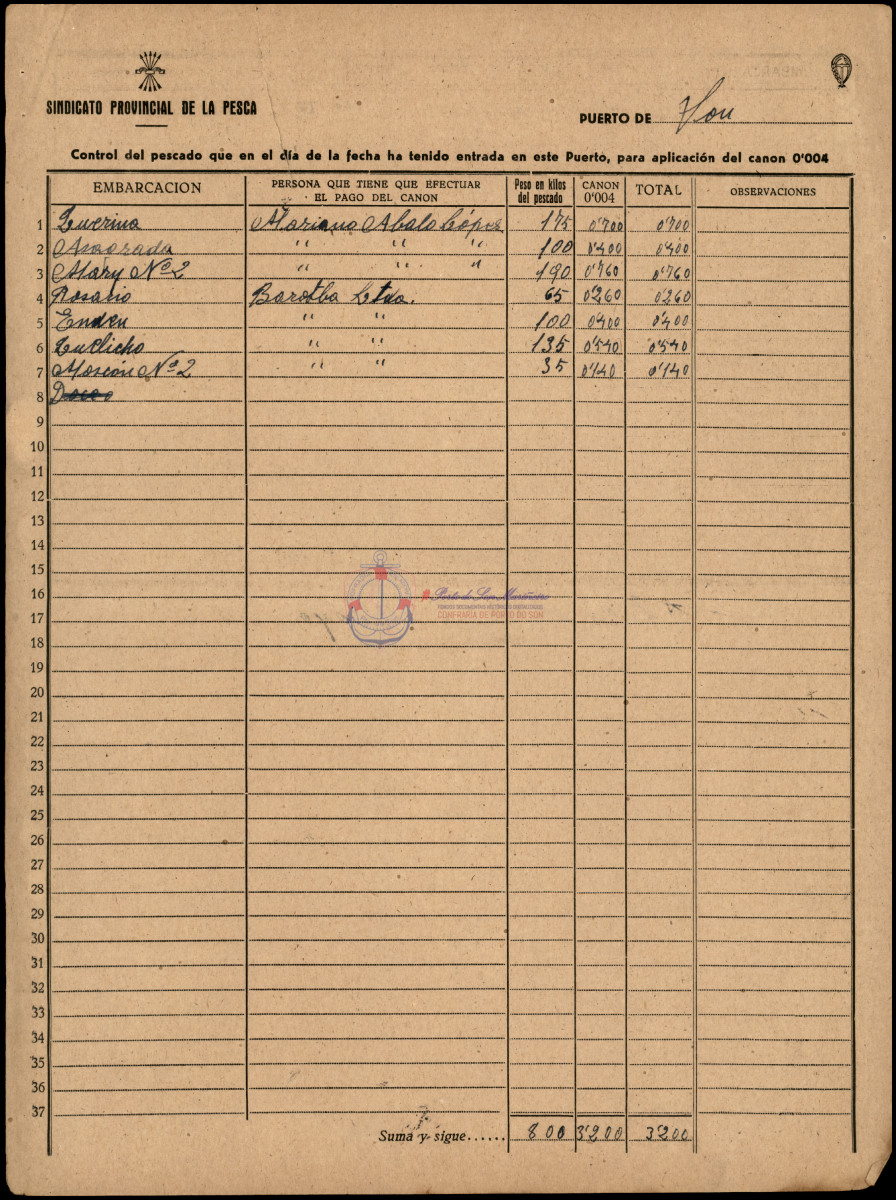 SINDICATO PROVINCIAL DE LA PESCA
PUERTO DE Son
Control del pescado que en el día de la fecha ha tenido entrada en este Puerto, para aplicación del canon 0'004
EMBARCACION PERSONA QUE TIENE QUE EFECTUAR EL PAGO DEL CANON Peso en kilos del pescado CANON 0'004 TOTAL OBSERVACIONES
1 Mariano Abalo López 175 0'700 0'700
2 " " " 100 0'400 0'400
3 Mary Nº 2 " " " 190 0'760 0'760
4 Rosario Ltda. 65 0'260 0'260
5 " " 100 0'400 0'400
6 " " 135 0'540 0'540
7 Nº 2 " " 35 0'140 0'140
8
9
10
11
12
13
14
15
16
17
18
19
20
21
22
23
24
25
26
27
28
29
30
31
32
33
34
35
36
37
Porto do Son Mariñeiro
CONFRARÍA DE PORTO DO SON
Suma y sigue...... 800 3'200 3'200